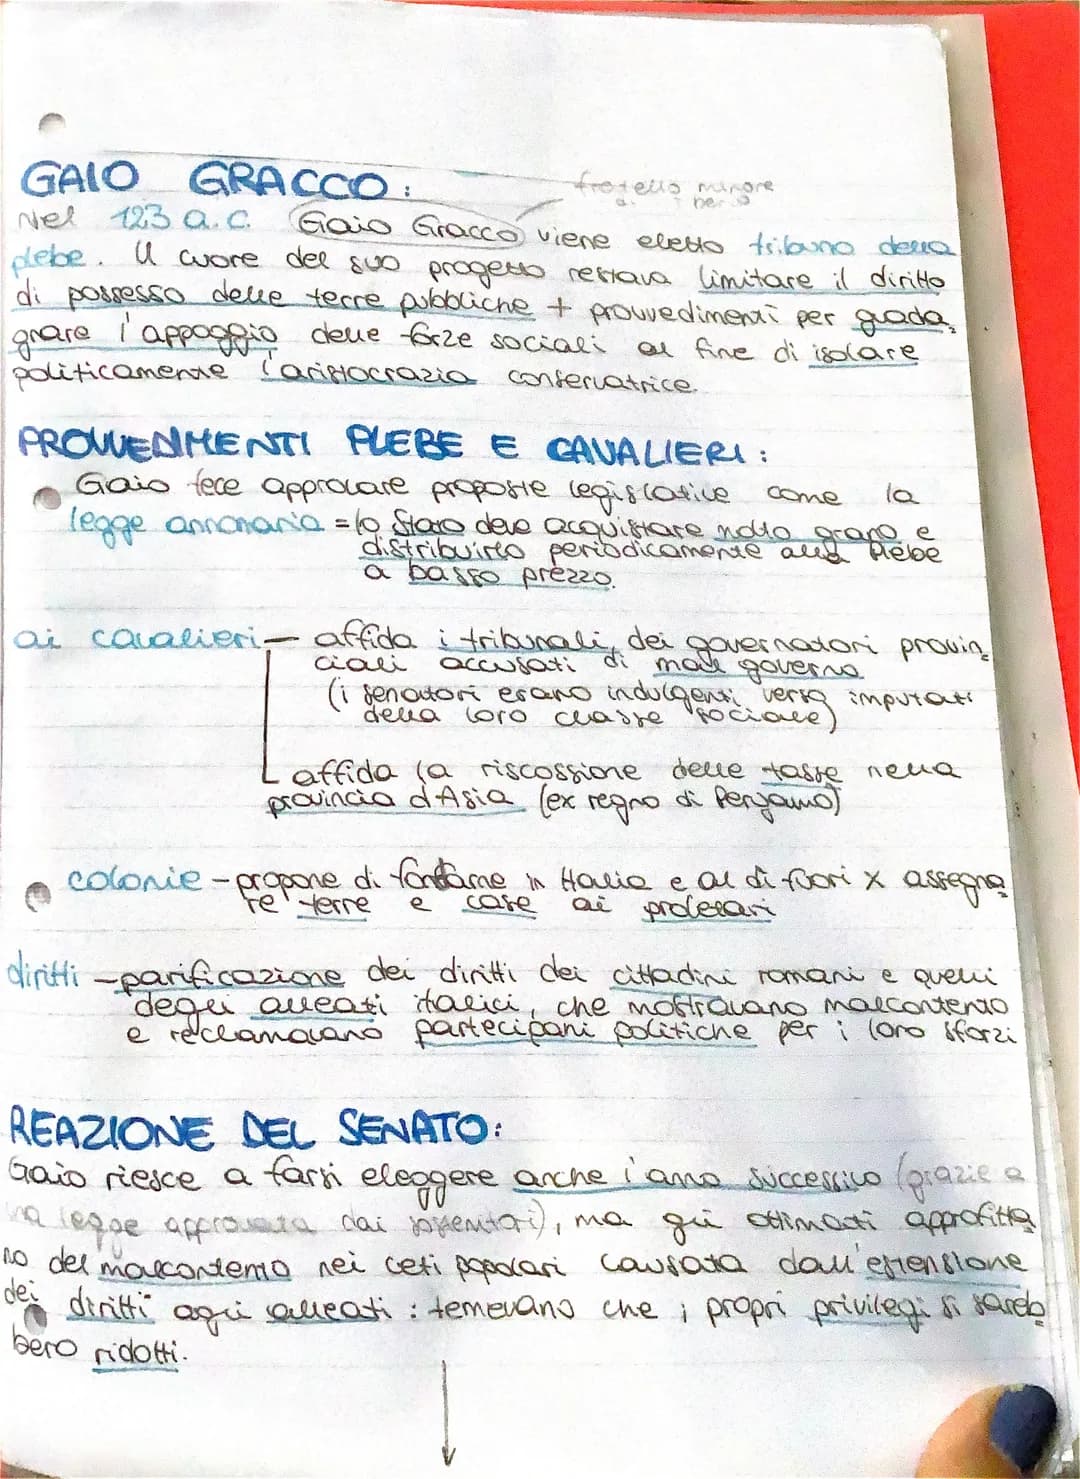 GAIO GRACCO:
fratello minore
di Tiberio
Nel 123 a.C. Gaio Gracco viene eletto tribuno della
plebe. Il cuore del suo progetto restava limitare il diritto
di possesso delle terre pubbliche + provvedimenti per guada
gnare l'appoggio delle forze sociali al fine di isolare
politicamente l'aristocrazia conservatrice.
PROVVEDIMENTI PLEBE E CAVALIERI:
Gaio fece approvare proposte legislative come la
legge annonaria = lo Stato deve acquistare molto grano e
distribuirlo periodicamente alla Plebe
a basso prezzo.
ai cavalieri - affida i tribunali, dei governatori provin
ciali accusati di mal governo
(i senatori erano indulgenti verso imputati
della loro classe sociale)
affida la riscossione delle tasse nella
provincia d'Asia (ex regno di Pergamo)
colonie - propone di fondarne in Italia e al di fuori x assegna
re terre e case ai proletari
diritti - parificazione dei diritti dei cittadini romani e quelli
degli alleati italici, che mostravano malcontento
e reclamavano partecipani politiche per i loro sforzi
REAZIONE DEL SENATO:
Gaio riesce a farsi eleggere anche l'anno successivo (grazie a
una legge approvata dai sostenitori), ma gli ottimati approfitta
no del malcontento nei ceti popolari causata dall'estensione
dei diritti agli alleati: temevano che i propri privilegi si sareb
bero ridotti.